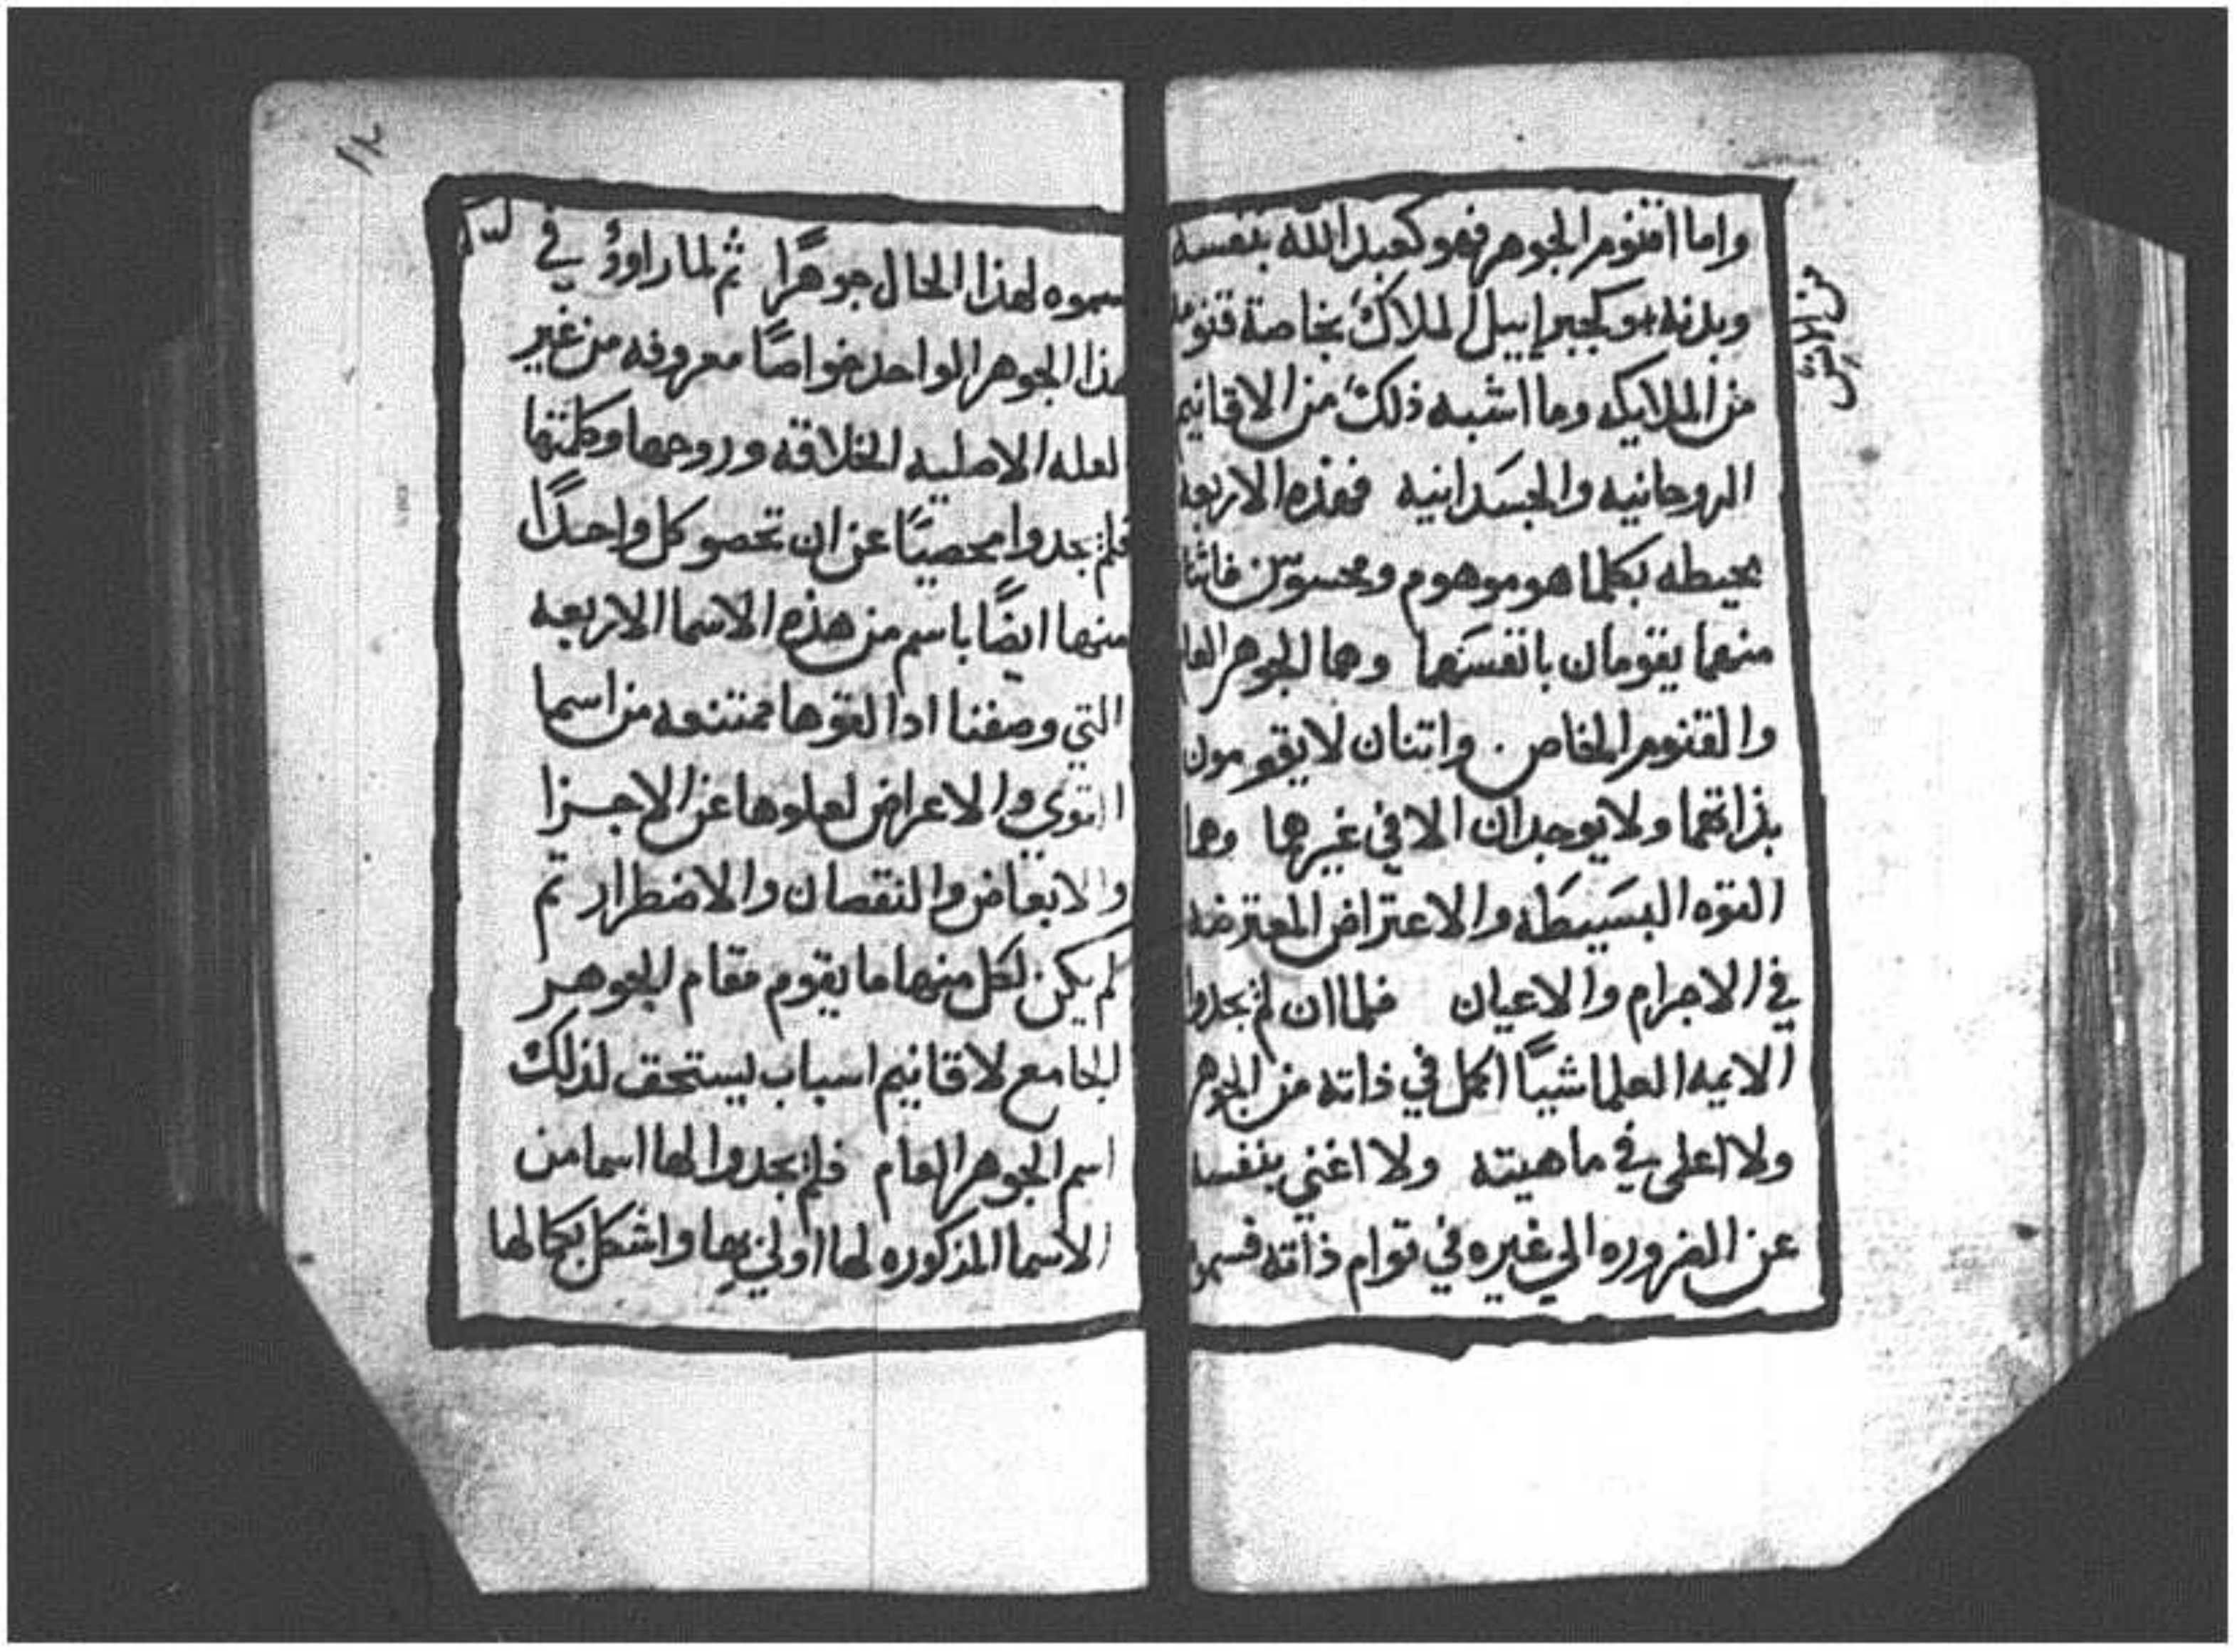 واما اقنوم الجوهر فهو كعبد الله بنفسه
وبدنه وكجبراييل الملاك بخاصة قنومه
من الملايكه وما اشبه ذلك من الاقانيم
الروحانيه والجسدانيه فهذه الاربعه
محيطه بكلما هو موهوم ومحسوس فاثنان
منهما يقومان بانفسهما وهما الجوهر العام
والقنوم الخاص. واثنان لا يقومون
بذاتهما ولا يوجدان الا في غيرهما وهما
القوه البسيطه والاعتراض المعترضه
في الاجرام والاعيان فلما ان لم يجدوا
الايمه العلما شيًا اكمل في ذاته من الجوهر
ولا اعلى في ماهيته ولا اغني بنفسه
عن الضروره الي غيره في قوام ذاته فسمو
١٢
سموه لهذا الحال جوهرًا ثم لما راوؤ في
هذا الجوهر الواحد خواصًا معروفه من غير
لعله الاصليه الخلاقه وروحها وكلمتها
فلم يجدوا محصيًا عن ان تحصو كل واحدًا
منها ايضًا باسم من هذه الاسما الاربعه
التي وصفنا ادا لقوها ممتنعه من اسما
القوي والاعراض لعلوها عن الاجزا
والابعاض والنقصان والاضطرار تم
لم يكن لكل منها ما يقوم مقام الجوهر
الجامع لاقانيم اسباب يستحق لذلك
اسم الجوهر العام فلم يجدوا لها اسما من
الاسما المذكوره لها اولي بها واشكل بكمالها